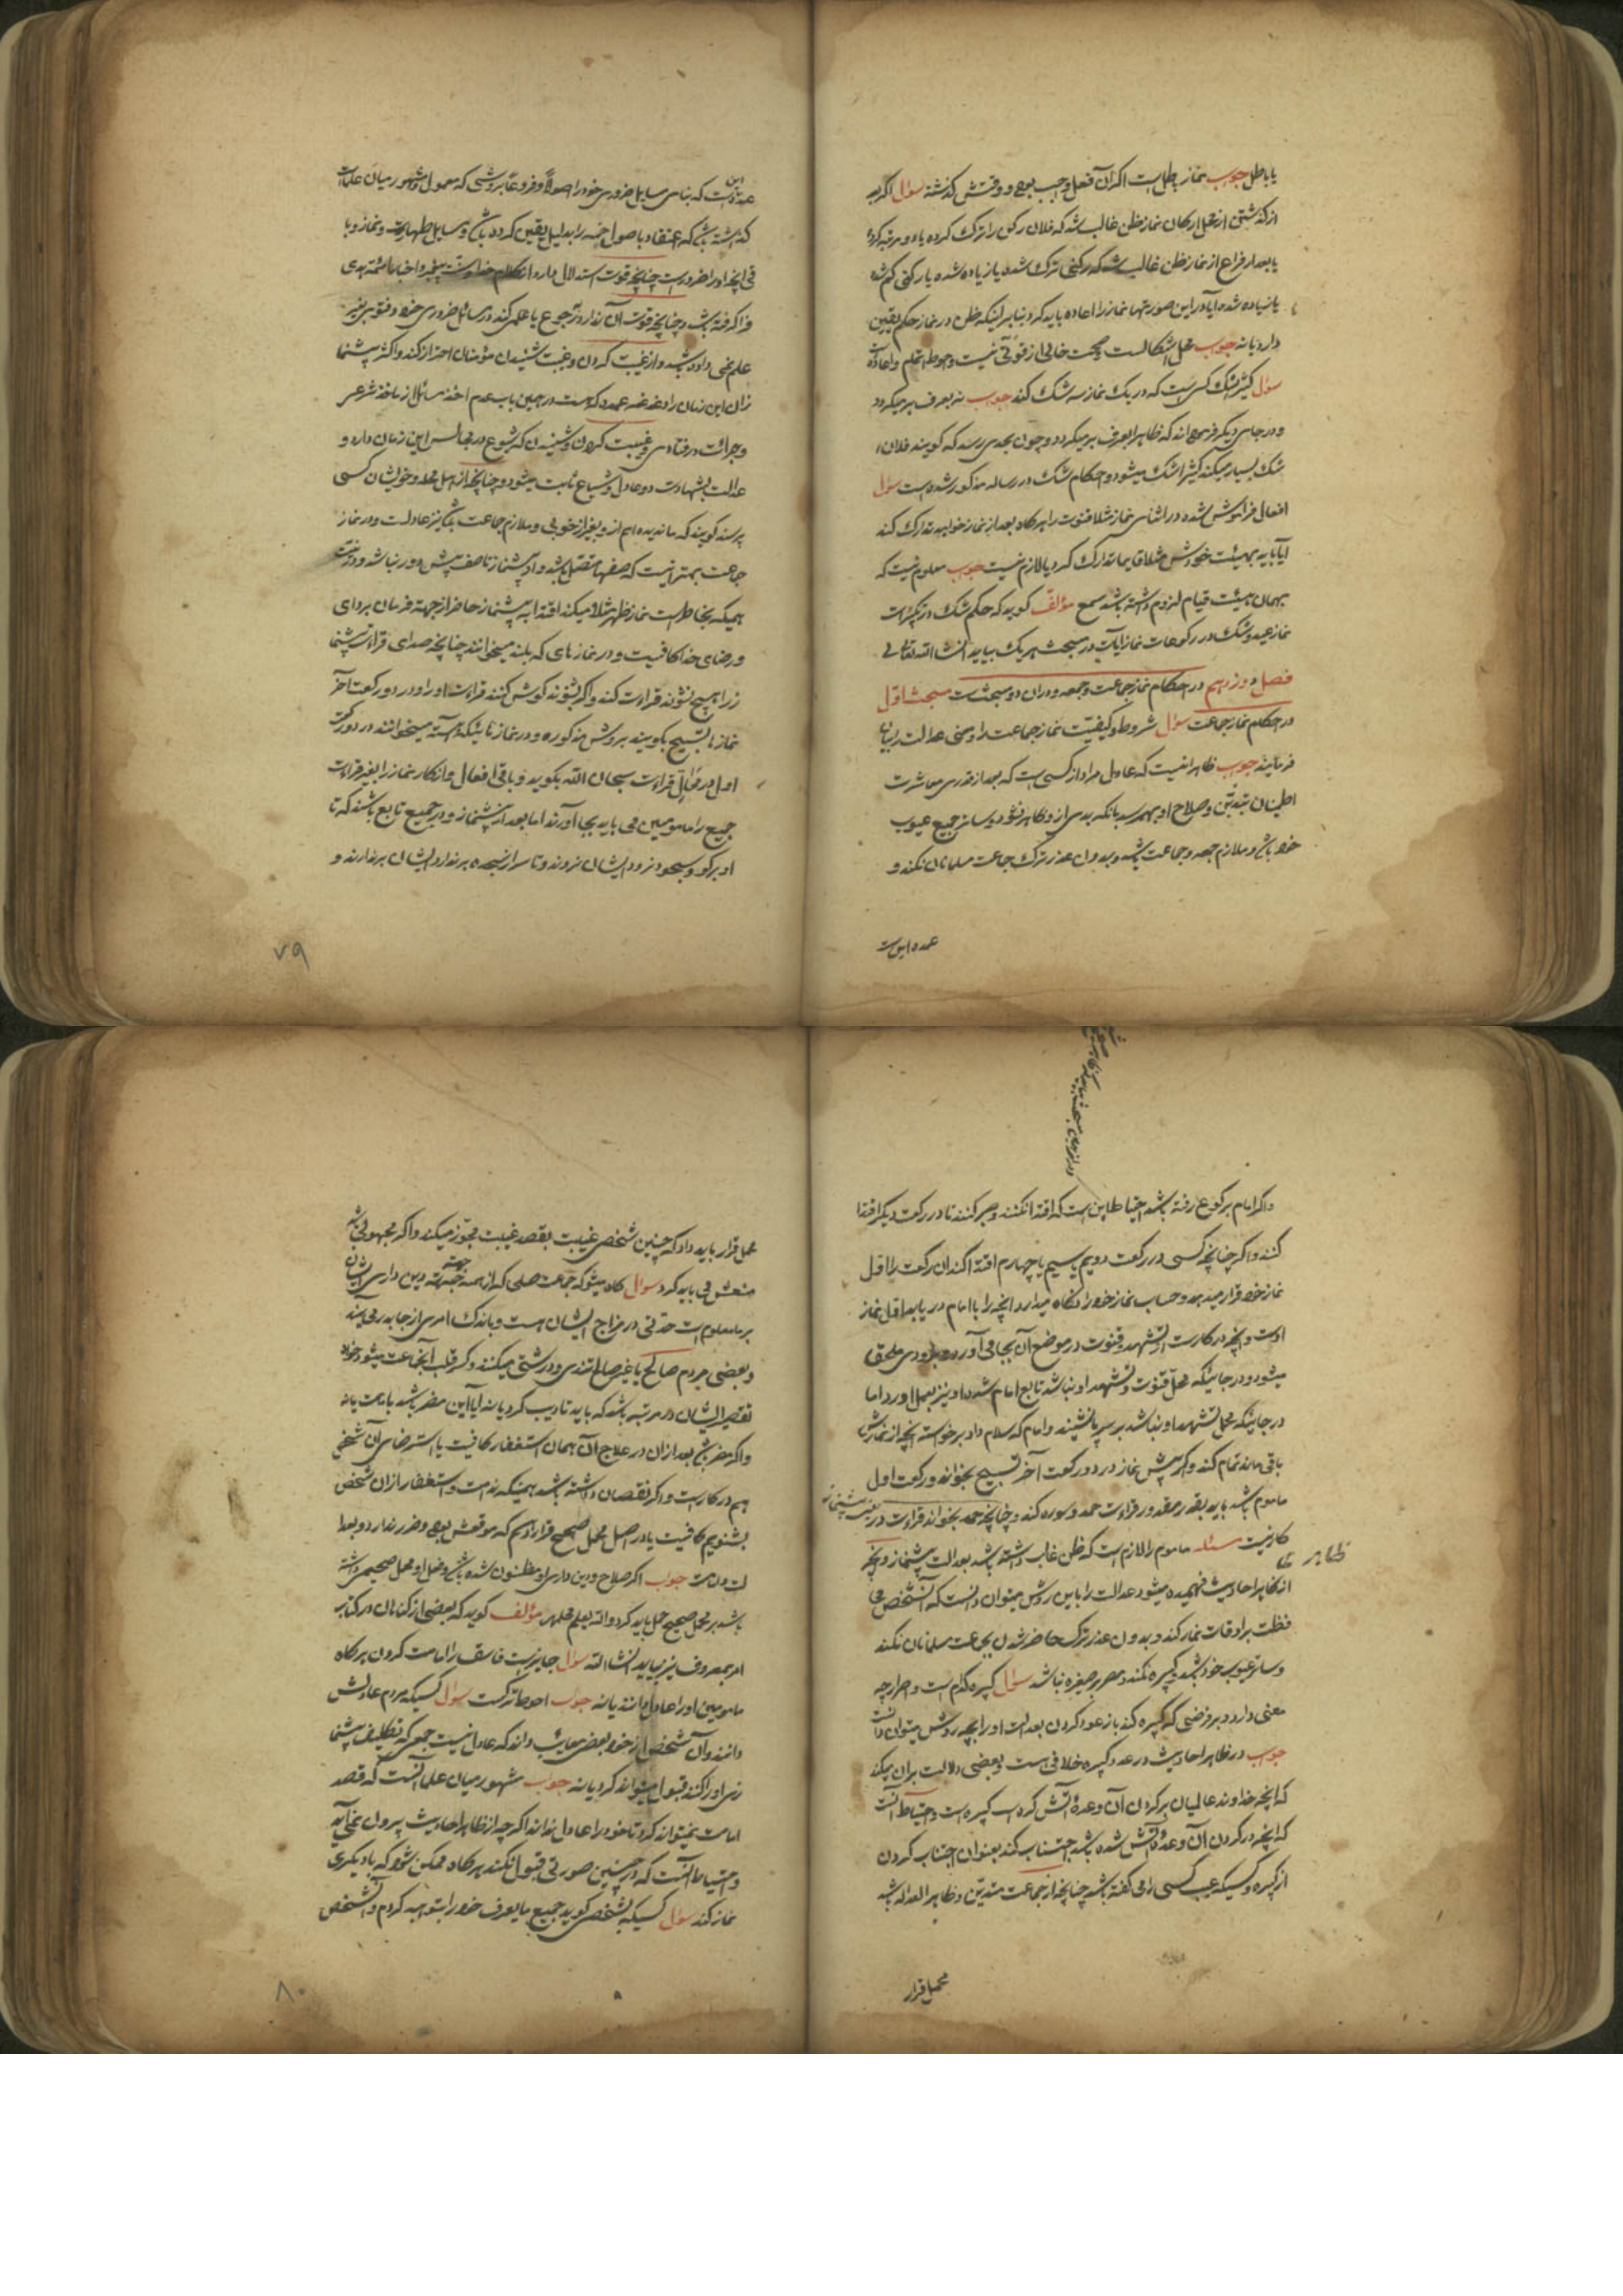 یا باطل جواب نماز باطل است اگر آن فعل واجب بوده و وقتش گذشته سؤال اگر بعد
از گذشتن از محل ارکان نماز ظن غالب شد که فلان رکن را ترک کرده یا دو مرتبه کرده
یا بعد از فراغ از نماز ظن غالب شد که رکنی ترک شده یا زیاده شده یا رکنی کم شده
یا زیاده شده آیا در این صورتها نماز را اعاده باید کرد بنابر اینکه ظن در نماز حکم یقین
دارد یا نه جواب محل اشکالست و صحت خالی از قوتی نیست و احوط اتمام و اعاده
سؤال کثیر الشک کسی است که در یک نماز سه شک کند جواب نه بعرف بر میگردد
و در جای دیگر فرموده‌اند که ظاهرا بعرف بر میگردد و چون بحدی رسد که گویند فلان
شک بسیار میکند کثیر الشک میشود و احکام شک در رساله مذکور شده است سؤال
افعال فراموش شده در اثنای نماز مثلا قنوت را هر گاه بعد از نماز خواهد تدارک کند
آیا باید بهیئت خودش مثلا قایما تدارک کرد یا لازم نیست جواب معلوم نیست که
بهمان هیئت قیام لزوم داشته باشد سمع مؤلف گوید که حکم شک در تکبیرات
نماز عید و شک در رکوعات نماز آیات در مبحث هر یک بیاید انشاء الله تعالی
فصل دوازدهم در احکام نماز جماعت و جمعه و در آن دو مبحث است مبحث اول
در احکام نماز جماعت سؤال شروط و کیفیت نماز جماعت را و معنی عدالت را بیان
فرمایند جواب ظاهرا اینست که عادل مراد از کسی است که بعد از قدری معاشرت
اطمینان بتدین و صلاح او بهم رسد بآنکه بدی از او ظاهر نشود و ساتر جمیع عیوب
خود باشد و ملازم جمعه و جماعت باشد و بدون عذر ترک جماعت مسلمانان نکند و
عمده این است
عمده این است که بنای مسایل ضروری خود را اصولا و فروعا بروشی که معمول و مشهور میان علماست
گذاشته باشد که اعتقاد باصول خمسه را بدلیل یقین کرده باشد و مسایل طهارت و نماز و با
قی آنچه او را ضرور است چنانچه قوت استدلال دارد از کلام خدا و سنت پیغمبر و اخبار ائمه هدی
فرا گرفته باشد و چنانچه قوت آن ندارد رجوع باعلمی کند در مسائل ضروری خود و فتوی بغیر
علم نمی داده باشد و از غیبت کردن و غیبت شنیدن مؤمنان احتراز کند و اکثر پیشنما
زان این زمان را دغدغه عمده که هست در همین باب عدم اخذ مسائل از ماخذ شرعی
و جرائت در فتاوی و غیبت کردن و شنیدن که شیوع در مجالس این زمان دارد و
عدالت بشهادت دو عادل و شیاع ثابت میشود و چنانچه از اهل محله و خویشان کسی
پرسند گویند که ما ندیده‌ایم از او بغیر از خوبی و ملازم جماعت باشد نیز عادلست و در نماز
جماعت بهتر اینست که صفها متصل باشد و از پیشنماز تا صف پیش دور نباشد و در نیت
همینکه بخاطر است نماز ظهر مثلا میکند اقتدا به پیشنماز حاضر از جهة فرمان برداری
و رضای خدا کافیست و در نماز های که بلند میخوانند چنانچه صدای قراءت پیشنما
ز را هیچ نشنود قراءت کند و اگر بشنوند گوش کنند قراءت او را و در دو رکعت آخر
نماز ها تسبیح بگویند بروش مذکوره و در نماز تا بینکه آهسته میخوانند در دو رکعت
اول در خلال قراءت سبحان الله بگوید و باقی افعال و اذکار نماز را بغیر قراءت
جمیع را مامومین می باید بجا آورند اما بعد از پیشنماز و در جمیع تابع باشند که تا
او برکوع و سجود نرود ایشان نروند و تا سر از سجده بر ندارد ایشان بر ندارند و
۷۹
و اگر امام برکوع رفته باشد احتیاط این است که اقتدا نکنند و صبر کنند تا در رکعت دیگر اقتدا
کنند و اگر چنانچه کسی در رکعت دویم یا سیم یا چهارم اقتدا کند آن رکعت را اول
نماز خود قرار میدهد و حساب نماز خود را نگاه میدارد آنچه را با امام در یابد اول نماز
اوست و آنچه در کار است از تشهد و قنوت در موضع آن بجا می آورد و بزودی ملحق
میشود و در جائیکه محل قنوت و تشهد او نباشد تابع امام شده او نیز بعمل آورد اما
در جائیکه محل تشهد او نباشد بر سر پا نشیند و امام که سلام داد برخواسته آنچه از نمازش
باقی مانده تمام کند و اگر پیش نماز در دو رکعت آخر تسبیح بخواند و رکعت اول
ماموم باشد باید بقدر مقدور قراءت حمد و سوره کند و چنانچه حمد بخواند قراءت در
کار نیست مسئله ماموم را لازم است که ظن غالب داشته باشد بعدالت پیشنماز و آنچه
از ظاهر احادیث فهمیده میشود عدالت را باین روش میتوان دانست که آنشخص محا
فظت بر اوقات نماز کند و بدون عذر ترک حاضر شدن بجماعت مسلمانان نکند
و ساتر عیوب خود باشد و کبیره نکند و مصر بر صغیره نباشد سؤال کبیره کدام است و اصرار چه
معنی دارد و بر فرضی که کبیره کند باز عود کردن بعدالت او را بچه روش میتوان دانست
جواب در ظاهر احادیث در عدد کبیره خلافی هست و بعضی دلالت بر آن میکند
که آنچه خداوند عالمیان بر کردن آن وعدهٔ آتش کرده است کبیره است و احتیاط آنست
که آنچه در کردن آن وعدهٔ آتش شده باشد اجتناب کند بعنوان اجتناب کردن
از کبیره و کسیکه عیب کسی را می گفته باشد چنانچه از جماعت متدین و ظاهر العداله باشد
محمل قرار
محمل قرار باید داد که چنین شخصی غیبت بقصد غیبت تجویز نمیکند و اگر مجهولی باشد
منعش می باید کرد سوال گاه میشود که جماعت صلحی که از همه جهة دین داری ایشان
بر ما معلوم است حدتی در مزاج ایشان هست و باندک امری از جا بدر می آیند
و بعضی مردم صالح یا غیر صالح تندی و درشتی میکنند و کسر قلب آنجماعت میشود خواه
تقصیر ایشان در مرتبه باشد که باید تادیب کرد یا نه آیا این مضر باشد بامامت یا نه
و اگر مضر باشد بعد از آن در علاج آن همان استغفار کافیست یا استرضای آن شخص
هم در کار است و اگر نقصان داشته باشد همینکه ندامت و استغفار از آن شخص
بشنویم کافیست یا در اصل محمل صحیح قرار دهیم که موقعش بوده و ضرر ندارد و بعدا
لت دانست جواب اگر صلاح و دین داری او مظنون شده باشد و فعل او محمل صحیحی داشته
باشد بر محمل صحیح حمل باید کرد و الله یعلم مؤلف گوید که بعضی از گناهان در کتاب
امر بمعروف نیز بیاید انشاء الله سؤال جایز است فاسق را امامت کردن هر گاه
مامومین او را عادل دانند یا نه جواب احوط ترکست سؤال کسیکه مردم عادلش
دانند و آن شخص از خود بعضی معایب داند که عادل نیست جمعی که تکلیف پیشنما
زی او را کنند قبول میتواند کرد یا نه جواب مشهور میان علما آنست که قصد
امامت نمیتواند کرد تا خود را عادل نداند اگر چه از ظاهر احادیث بیرون نمی آید
و احتیاط آنست که در چنین صورتی قبول نکند هر گاه ممکن شود که با دیگری
نماز کند سؤال کسیکه بشخصی گوید جمیع ما یعرف خود را بتو هبه کردم و آنشخص
۸۰